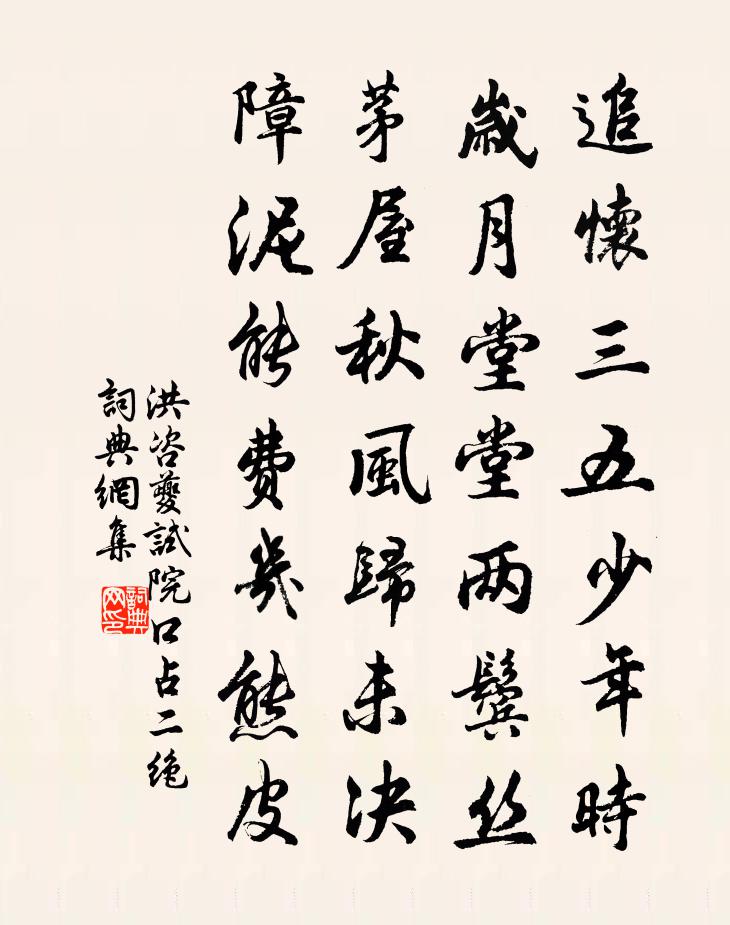 追懷三五少年時
歲月堂堂两鬓丝
茅屋秋風歸未決
障泥能費幾熊皮
洪咨夔試院口占二绝
詞典網集
詞典
网印